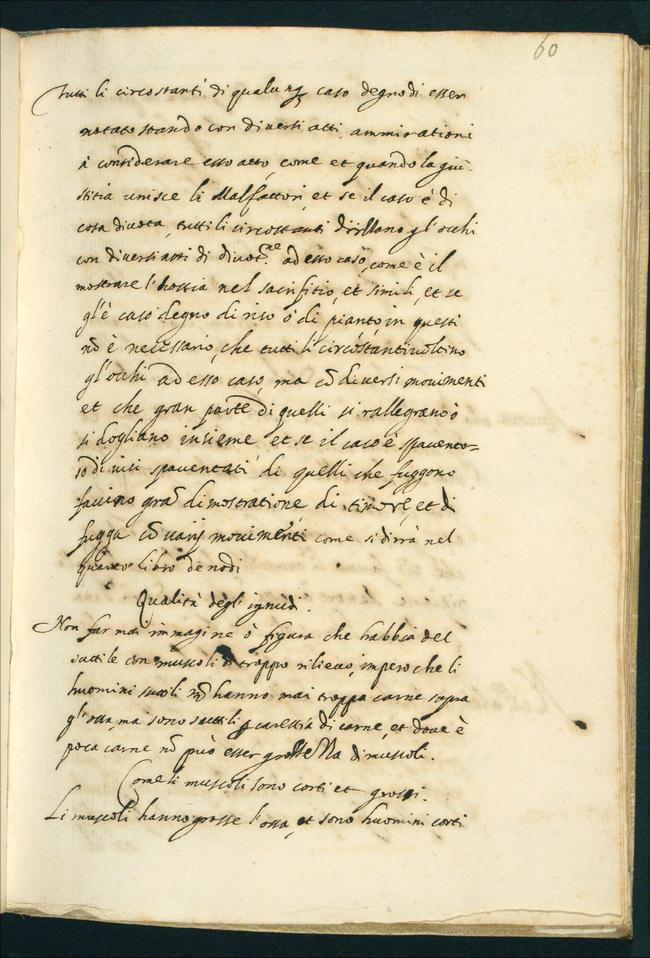 60
Tutti li circostanti di qualunq caso degno di esser
notato stando con diversi atti ammirationi
à considerare esso atto, come et quando la giu-
stitia unisce li Malfattori, et se il caso è di
cosa divota, tutti li circostanti drizzano gl'occhi
con diversi atti di divot.ne ad esso caso, come è il
mostrare l'hostia nel sacrifitio, et simili, et se
gl'è caso degno di riso ò di pianto, in questi
nō è necessario, che tutti li circostanti voltino
gl'occhi ad esso caso, ma cō diversi movimenti
et che gran parte di quelli si rallegrano ò
si dogliano insieme et se il caso è spavento-
so di visi spaventati di quelli che fuggono
faccino grā dimostratione di timore, et di
fugga cō varij movimenti come si dirrà nel
quarto libro de nodi
Qualità degli ignudi.
Non far mai immagine ò figura che habbia del
suttile con muscoli di troppo rilievo, impero che li
huomini suttili nō hanno mai troppa carne sopra
gl'ossa, ma sono suttili p carestia di carne, et dove è
poca carne nō può esser grossezza di muscoli.
Come li muscoli sono corti et grossi.
Li muscoli hanno grosse l'ossa, et sono huomini corti